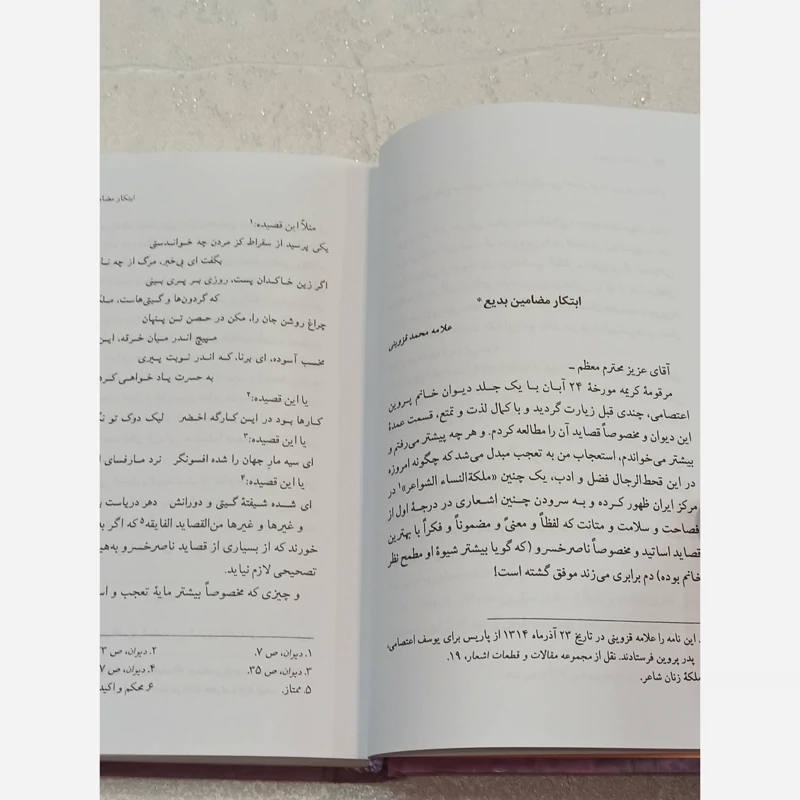 ابتکار مضامین بدیع*
علامه محمد قزوینی
آقای عزیز محترم معظم ـ
مرقومهٔ کریمه مورخهٔ ۲۴ آبان با یک جلد دیوان خانم پروین
اعتصامی، چندی قبل زیارت گردید و با کمال لذت و تمتع، قسمت عمدهٔ
این دیوان و مخصوصاً قصاید آن را مطالعه کردم. و هر چه پیشتر می‌رفتم و
بیشتر می‌خواندم، استعجاب من به تعجب مبدل می‌شد که چگونه امروزه
در این قحط‌الرجال فضل و ادب، یک چنین «ملکةالنساء الشواعر»۱ در
مرکز ایران ظهور کرده و به سرودن چنین اشعاری در درجهٔ اول از
فصاحت و سلامت و متانت که لفظاً و معنیً و مضموناً و فکراً با بهترین
قصاید اساتید و مخصوصاً ناصرخسرو (که گویا بیشتر شیوهٔ او مطمح نظر
خانم بوده) دم برابری می‌زند موفق گشته است!
این نامه را علامه قزوینی در تاریخ ۲۳ آذرماه ۱۳۱۴ از پاریس برای یوسف اعتصامی،
پدر پروین فرستادند. نقل از مجموعه مقالات و قطعات اشعار، ۱۹.
ملکهٔ زنان شاعر.
ابتکار مضام
مثلاً این قصیده:۱
یکی پرسید از سقراط کز مردن چه خواندستی
بگفت ای بی‌خبر، مرگ از چه نا
اگر زین خاکدان پست، روزی بر پری بینی
که گردون‌ها و گیتی‌هاست، ملک
چراغ روشن جان را، مکن در حصن تن پنهان
مپیچ اندر میان خرقه، این
مخسب آسوده، ای برنا، که اندر نوبت پیری
به حسرت یاد خواهی کرد
یا این قصیده:۲
کارها بود در این کارگه اخضر لیک دوک تو نگ
یا این قصیده:۳
ای سیه مار جهان را شده افسونگر نرد مارفسای ا
یا این قصیده:۴
ای شده شیفتهٔ گیتی و دورانش دهر دریاست
و غیرها و غیرها من‌القصاید الفایقه۵ که اگر به
خورند که از بسیاری از قصاید ناصرخسرو به‌هی
تصحیحی لازم نیاید.
و چیزی که مخصوصاً بیشتر مایهٔ تعجب و اس
۱. دیوان، ص ۷. ۲. دیوان، ص ۳
۳. دیوان، ص ۳۵. ۴. دیوان، ص ۷
۵. ممتاز. ۶. محکم و اکید